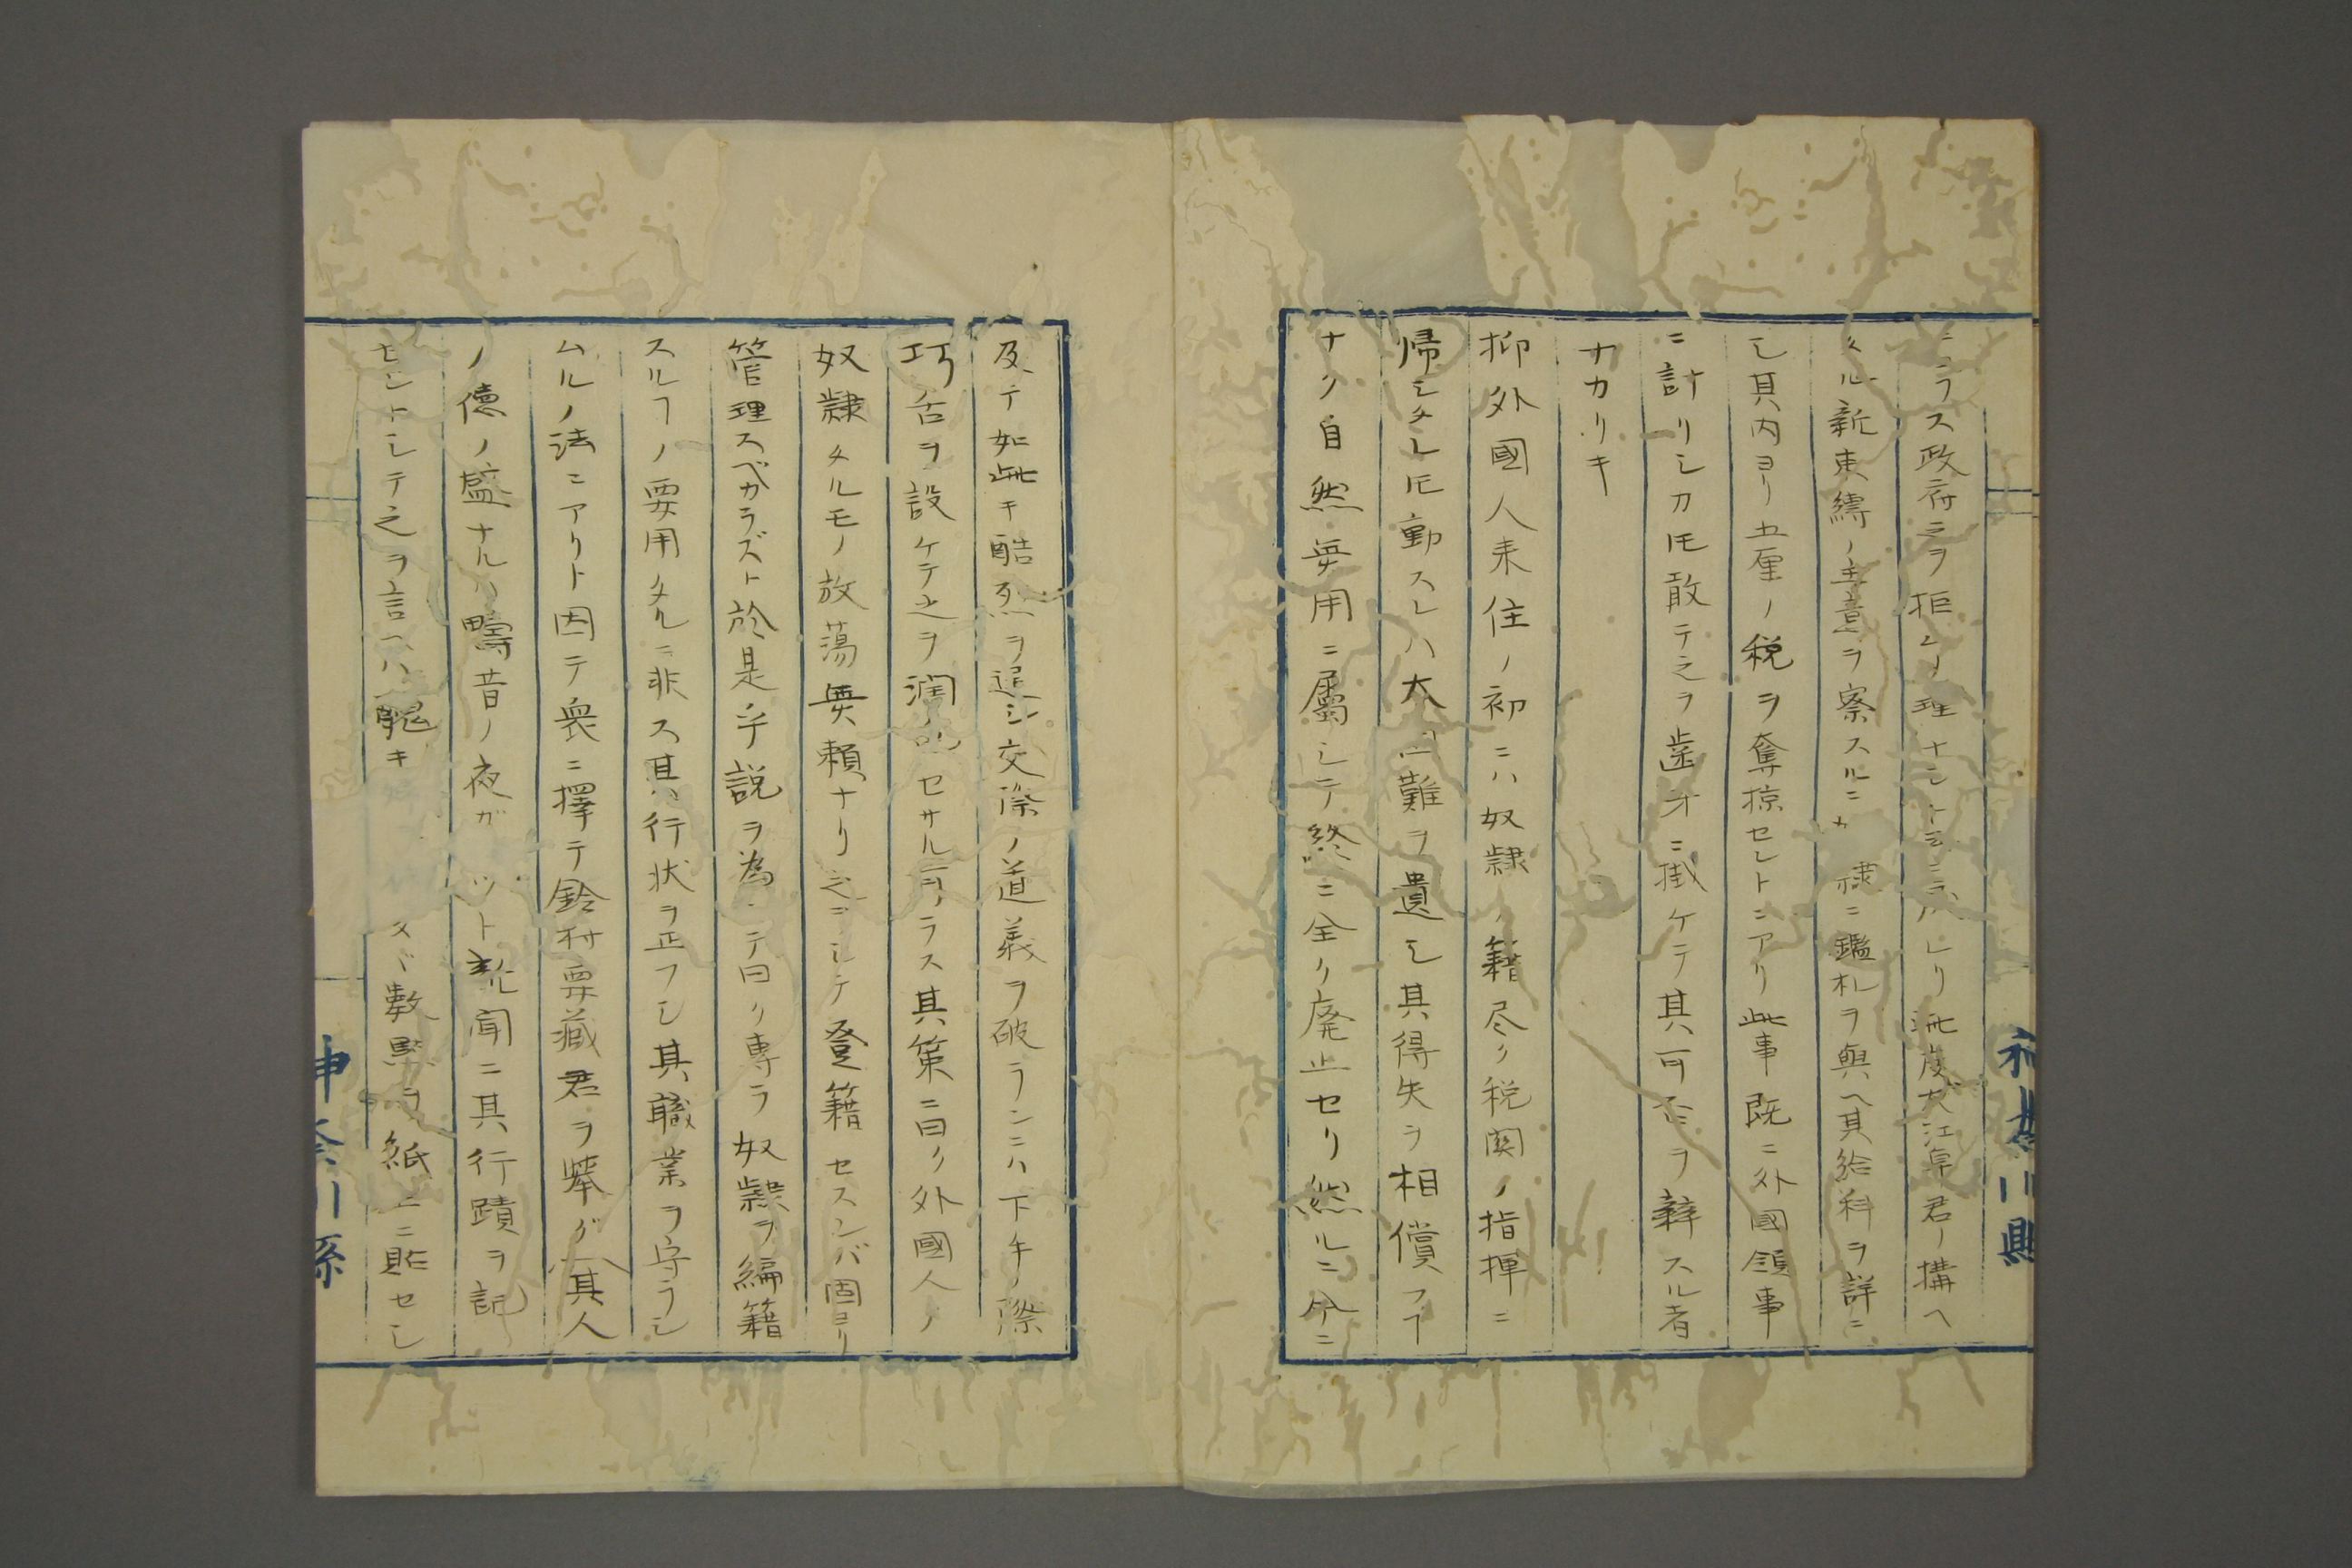 ニラス政府之ヲ拒ムノ理ナシトヨニ為レリ此度大江卓君ノ構ヘ
タル新束縛ノ主意ヲ察スルニ 隷ニ鑑札ヲ與ヘ其給料ヲ詳ニ
シ其内ヨリ五厘ノ税ヲ奪掠セントニアリ此事既ニ外國領事
ニ計リシカ𪜈敢テ之ヲ歯牙ニ掛ケテ其可否ヲ辨スル者
ナカリキ
抑外國人来住ノ初ニハ奴隷ノ籍尽ク税関ノ指揮ニ
帰シタレ𪜈動スレハ大ニ難ヲ遺シ其得失ヲ相償フ
ナク自然無用ニ属シテ終ニ全ク廃止セリ然ルニ今ニ
及テ如此キ酷烈ヲ逞シ交際ノ道義ヲ破ランニハ下午ノ際
巧舌ヲ設ケテ之ヲ潤 セサル可ラス其策ニ曰ク外國人ノ
奴隷タルモノ放蕩無頼ナリ之ニシテ登籍セスンバ固ヨリ
管理スベカラズト於是乎説ヲ為 テ曰ク専ラ奴隷ヲ編籍
スルヿノ要用タルニ非ス其行状ヲ正フシ其職業ヲ守ラシ
ムルノ法ニアリト因テ衆ニ擇テ鈴村要蔵君ヲ挙グ其人
ノ徳ノ盛ナルハ疇昔ノ夜ガ ット 聞ニ其行蹟ヲ記
セントシテ之ヲ言ヘハ醜キ スベ数 ヲ紙上ニ貼セシ
神奈川縣
神奈川縣